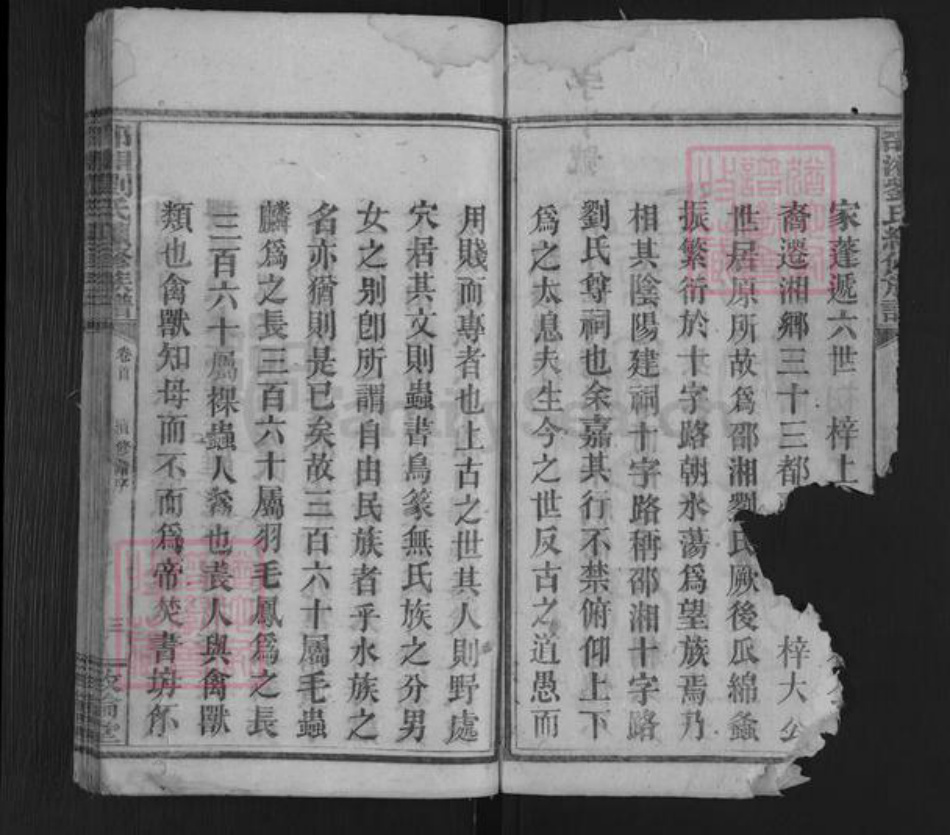 家蓬遞六世 梓上
裔遷湘鄉三十三都 梓大公
世居原所故爲邵湘劉氏厥後瓜綿螽
振繁衍於十字路朝水蕩爲望族焉乃
相其陰陽建祠十字路稱邵湘十字路
劉氏尊祠也余嘉其行不禁俯仰上下
爲之太息夫生今之世反古之道愚而
用賤而專者也上古之世其人則野處
穴居其文則蟲書鳥篆無氏族之分男
女之別卽所謂自由民族者乎水族之
名亦猶則是已矣故三百六十屬毛蟲
麟爲之長三百六十屬羽毛鳳爲之長
三百六十屬裸蟲人爲也喪人與禽獸
類也禽獸知母而不而爲帝焚書坊
卷首
三